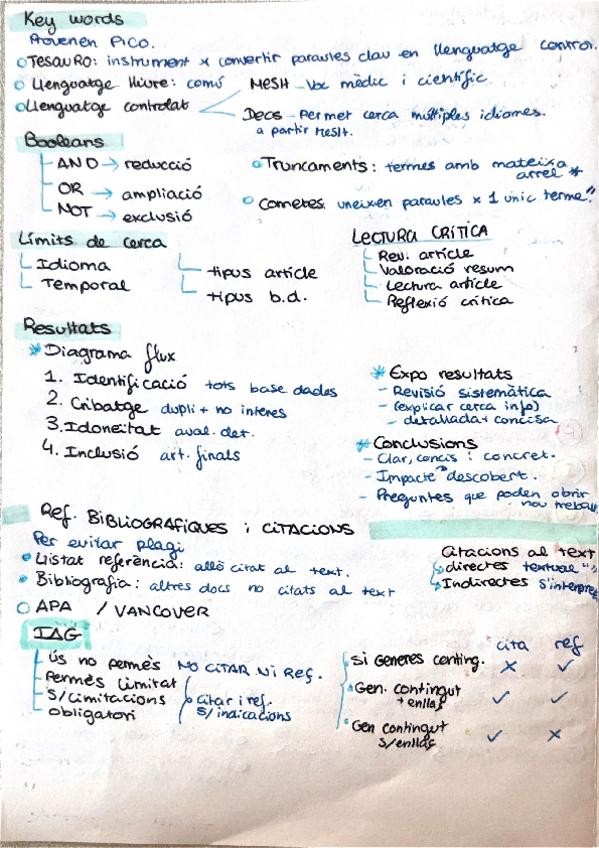 Key words
Provenen PICO.
TESAURO: instrument x convertir paraules clau en llenguatge control.
Llenguatge lliure: comú
Llenguatge controlat
MeSH - Voc mèdic i científic
Decs - Permet cerca múltiples idiomes.
a partir MeSH.
Booleans
AND → reducció
OR → ampliació
NOT → exclusió
Truncaments: termes amb mateixa
arrel *
Cometes: uneixen paraules x 1 únic terme "
Límits de cerca
Idioma
Temporal
tipus article
tipus b.d.
LECTURA CRÍTICA
Rev. article
Valoració resum
Lectura article
Reflexió crítica
Resultats
* Diagrama flux
1. Identificació tots base dades
2. Cribatge dupli + no interes
3. Idoneïtat aval. det.
4. Inclusió art. finals
* Expo resultats
- Revisió sistemàtica
- (explicar cerca info)
- detallada + concisa
* Conclusions
- Clar, concís i concret.
- Impacte descobert.
- Preguntes que poden obrir
nou treball
Ref. BIBLIOGRAFIQUES i CITACIONS
Per evitar plagi
Llistat referència: allò citat al text.
Bibliografia: altres docs no citats al text
APA / VANCOVER
Citacions al text
directes textual " "
Indirectes s'interpre
IAG
ús no permés NO CITAR NI REF.
Permés limitat
S/limitacions
Obligatori
citar i ref.
s/indicacions
cita ref
Si Generes conting. ✗ ✓
Gen. contingut
+ enllaç ✓ ✓
Gen contingut
s/enllaç ✓ ✗